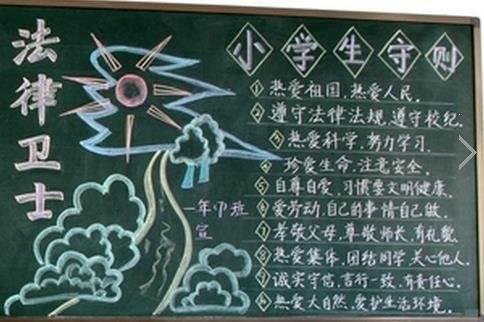 法律卫士
小学生守则
①热爱祖国,热爱人民。
②遵守法律法规,遵守校纪。
③热爱科学,努力学习。
④珍爱生命,注意安全。
⑤自尊自爱,习惯要文明健康。
⑥爱劳动,自己的事情自己做。
⑦孝敬父母,尊敬师长,有礼貌。
⑧热爱集体,团结同学,关心他人。
⑨诚实守信,言行一致,有责任心。
⑩热爱大自然,爱护生活环境。
一年 班
宣